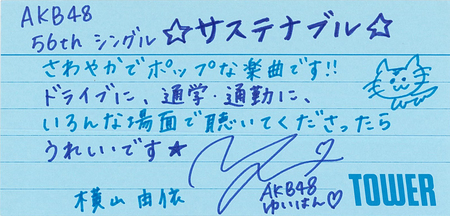 AKB48
56th シングル ☆サステナブル☆
さわやかでポップな楽曲です!!
ドライブに、通学・通勤に、
いろんな場面で聴いてくださったら
うれしいです★
横山由依
AKB48
ゆいはん♡
TOWER